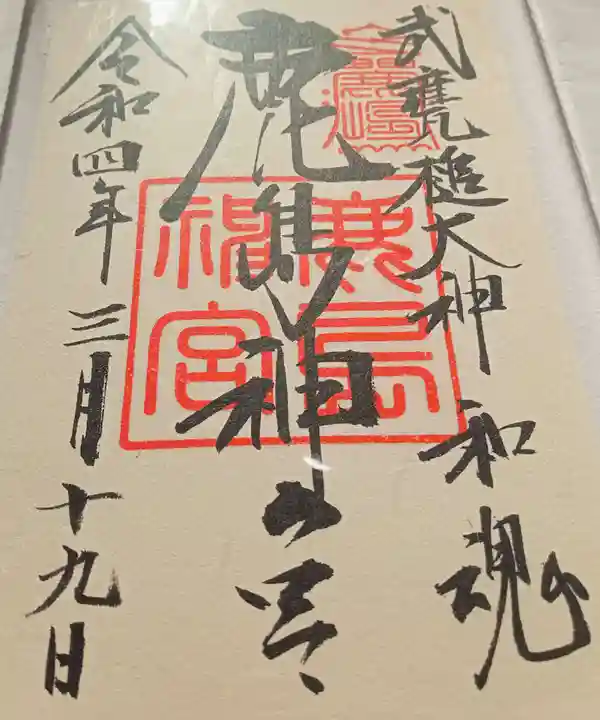 武甕槌大神 和魂
鹿島神宮
令和四年三月十九日
鹿島
神宮